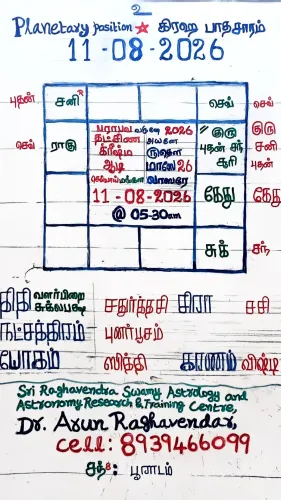 2
Planetary position ★ கிரஹ பாதசாரம்
11-08-2026
புதன் சனி R செவ் செவ்
பராபவ வருஷ 2026
தட்சிண அயனே
கேது ராகு குரு குரு
க்ரீஷ்ம ருதௌ
புதன் சந் சனி
ஆடி மாஸே 26
சூரி புதன்
வாஸரே
11-08-2026
கேது கேது
@ 05-30am
சுக் சந்
திதி வளர்பிறை சுக்லபக்ஷ சதுர்த்தசி சசி
நட்சத்திரம் புனர்பூசம்
யோகம் ஸித்தி கரணம் விஷ்டி
Sri Raghavendra Swamy Astrology and
Astronomy Research & Training Centre,
Dr. Arun Raghavendar,
cell: 8939466099
சந்: பூராடம்